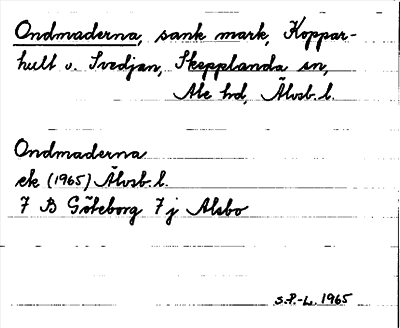 Ondmaderna, sank mark, Koppar-
hult o. Svedjan, Skepplanda sn,
Ale hd, Älvsb. l.
Ondmaderna
ek (1965) Älvsb. l.
7 B Göteborg 7 j Alsbo
S.P.-L. 1965